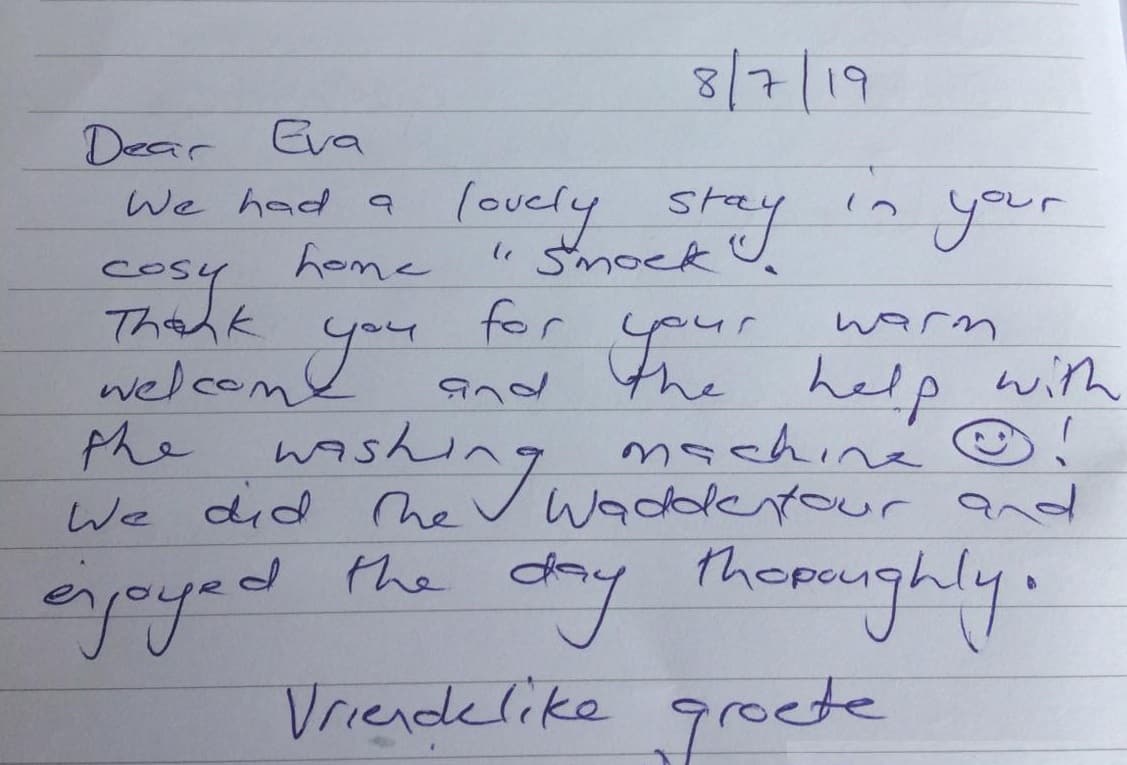 8/7/19
Dear Eva
We had a lovely stay in your
cosy home "Smoek".
Thank you for your warm
welcome and the help with
the washing machine ☺!
We did the Waddentour and
enjoyed the day thoroughly.
Vriendelike groete